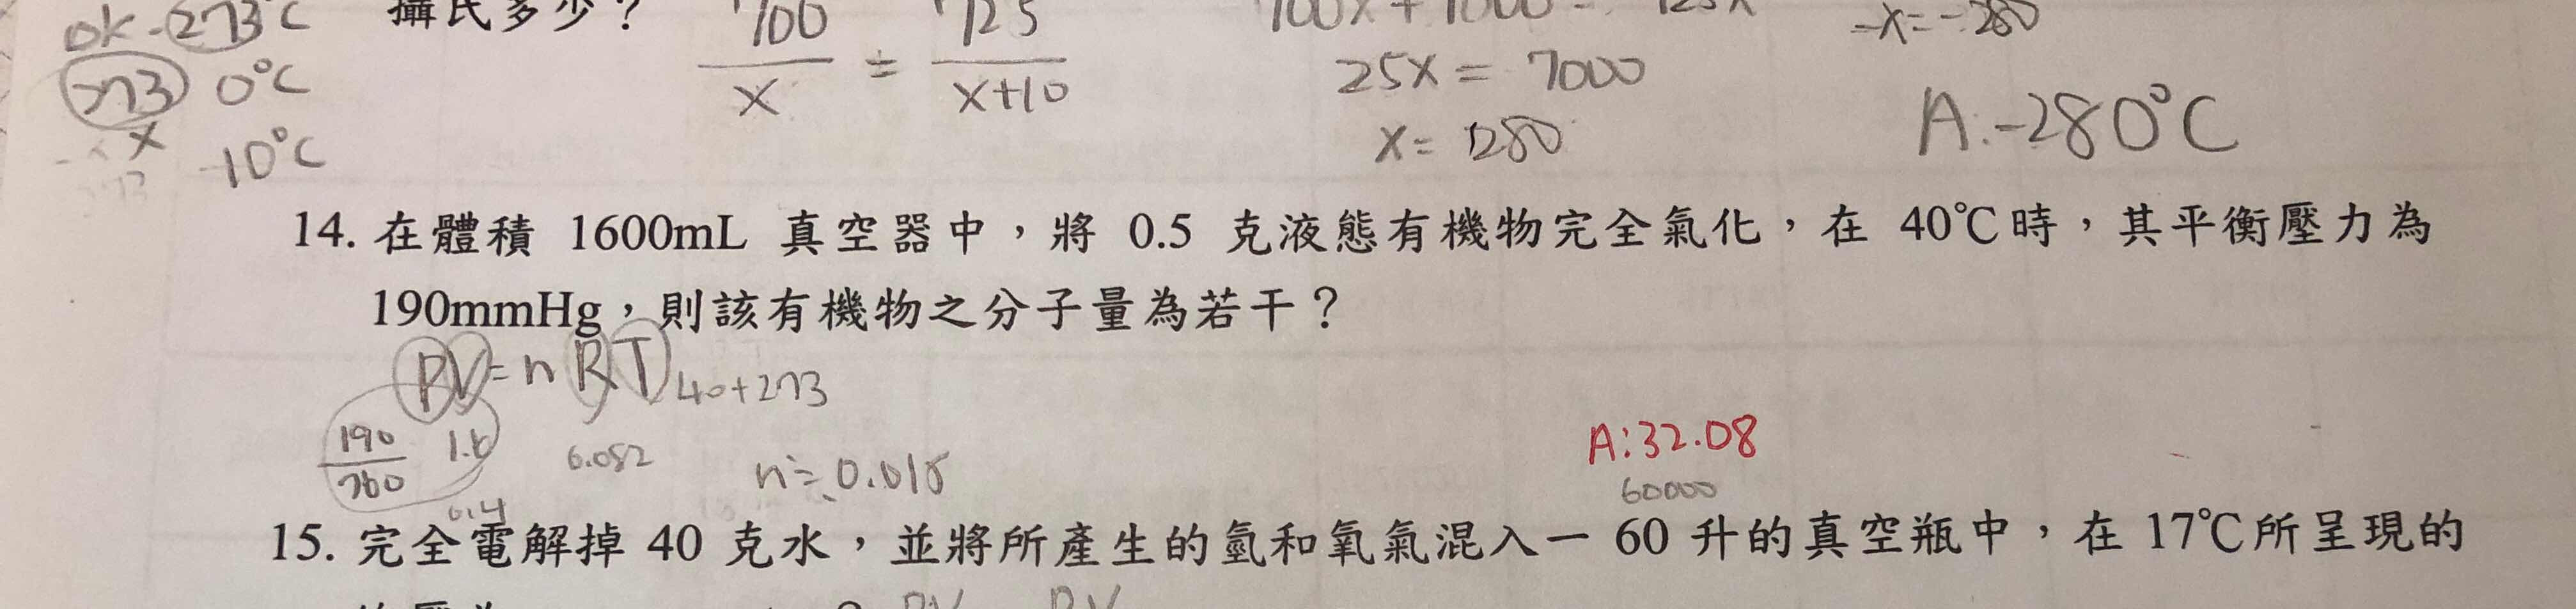 0K -273°C
攝氏多少？
273 0°C
x
-10°C
700/x = 725/x+10
25x = 7000
x = 280
-x = -280
A: -280°C
14. 在體積 1600mL 真空器中，將 0.5 克液態有機物完全氣化，在 40℃時，其平衡壓力為
190mmHg，則該有機物之分子量為若干？
PV = nRT 40+273
190/760 1.6 0.082
0.4
n≒0.015
A:32.08
60000
15. 完全電解掉 40 克水，並將所產生的氫和氧氣混入一 60 升的真空瓶中，在 17℃所呈現的